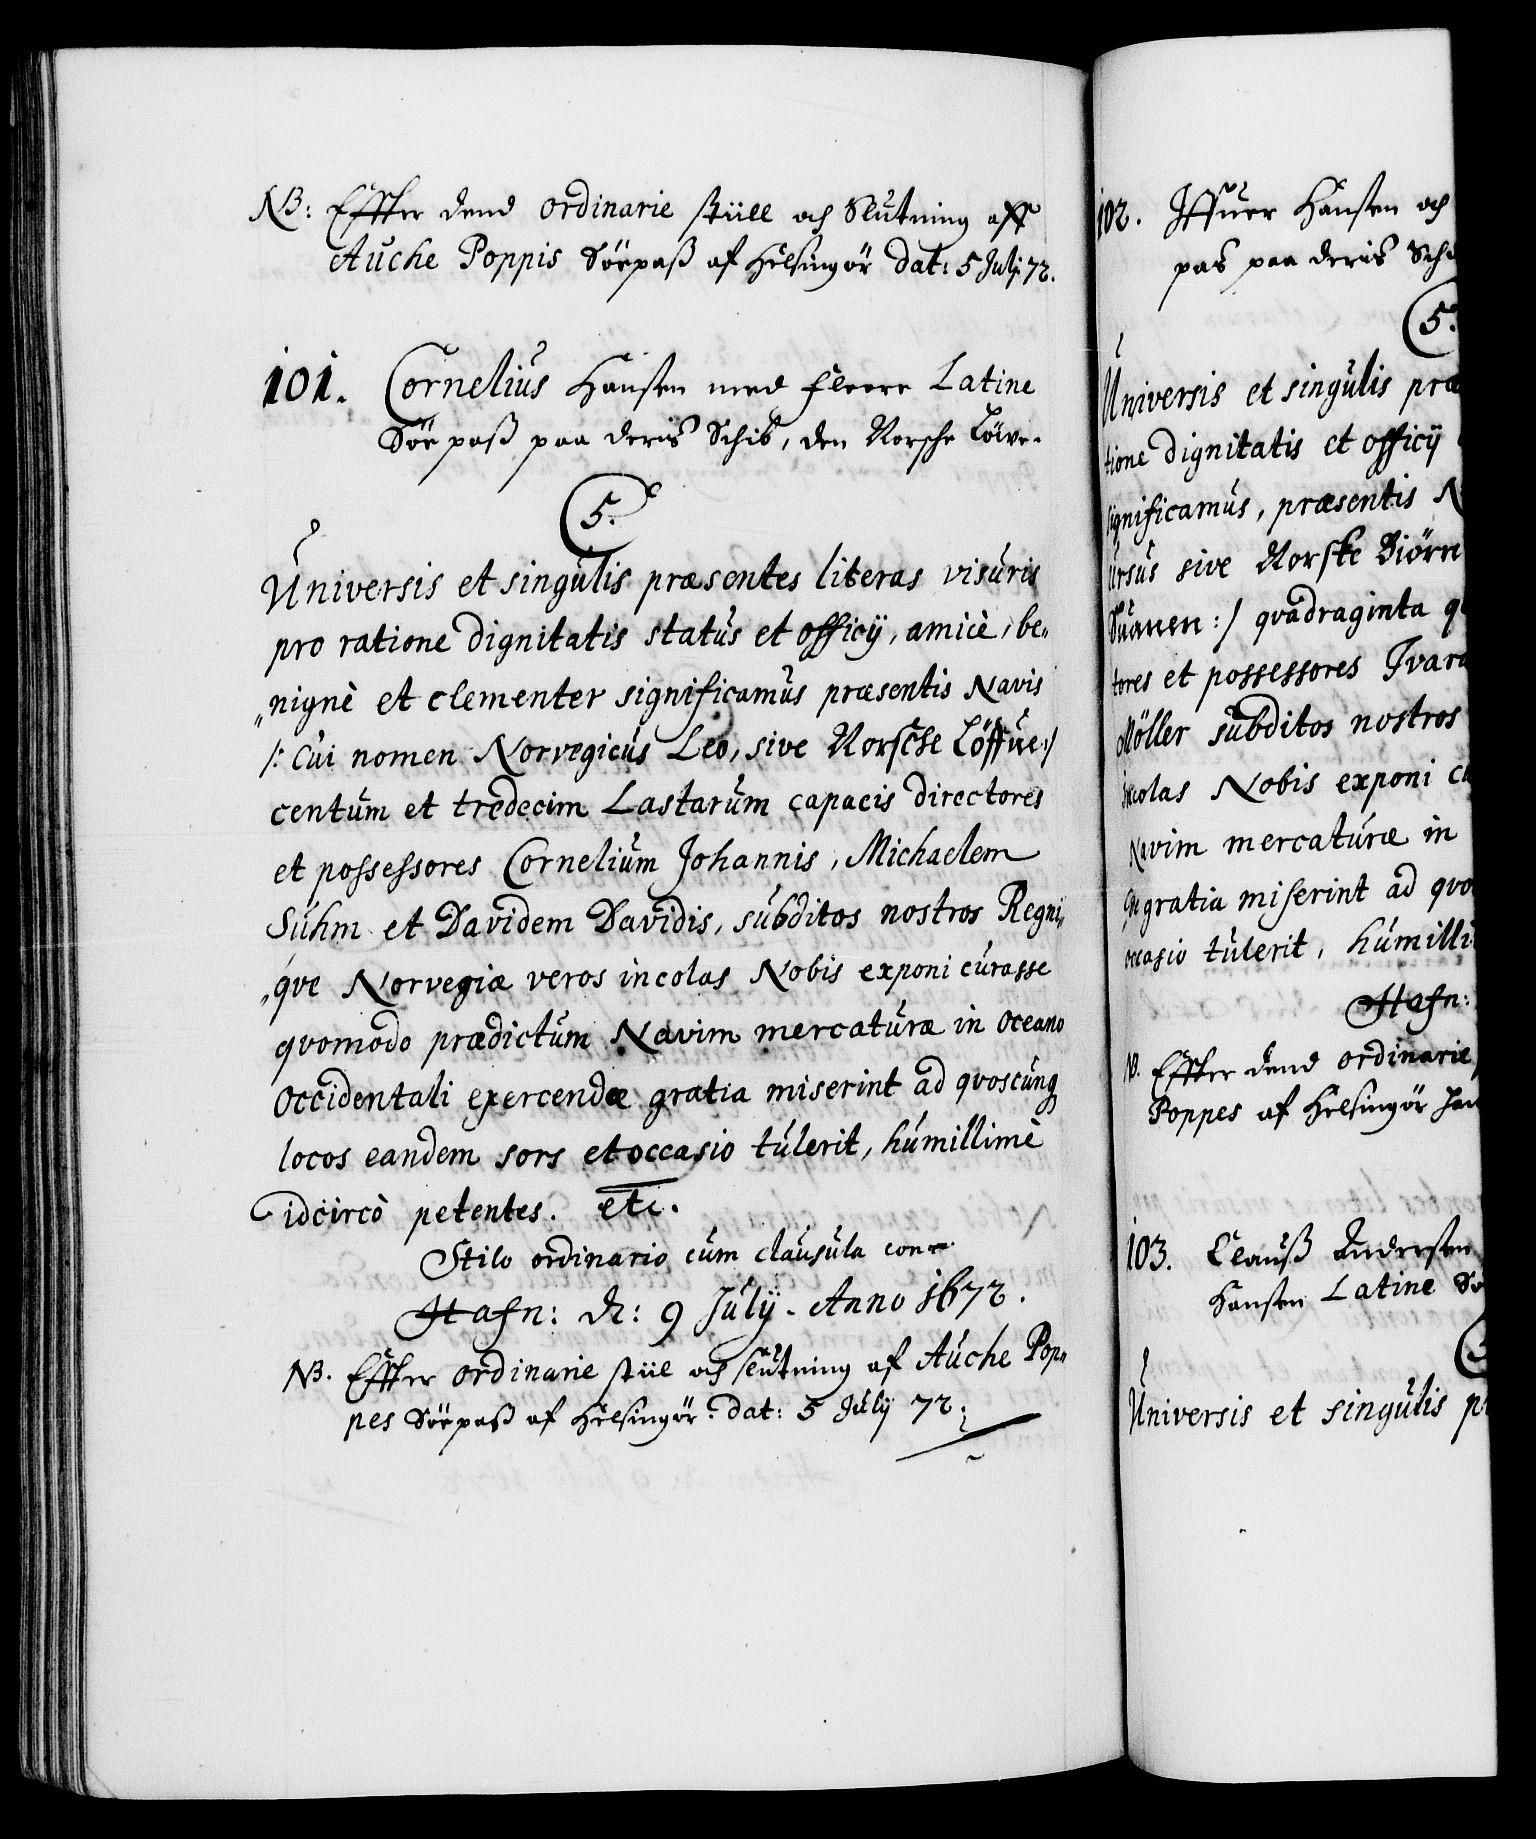 NB: Effter dend ordinarie stüll och Slutning aff
Auche Poppis Söepaß af Helsingör dat: 5 Julj 72.
101. Cornelius Hansen med fleere Latine
Söe paß paa deris Schib, den Norsche Löwe.
5.
Universis et singulis præsentes literas visuris
pro ratione dignitatis status et officij, amicè, be„
„nignè et clementer significamus præsentis Navis
/: Cui nomen Norvegicus Leo, sive Norsche Löffue :/
centum et tredecim Lastarum capacis directores
et possessores Cornelium Johannis, Michaelem
Suhm et Davidem Davidis, subditos nostros Regni„
„qve Norvegiæ veros incolas Nobis exponi curasse
qvomodo prædictum Navim mercaturæ in Oceano
Occidentali exercendæ gratia miserint ad qvoscunq
locos eandem sors et occasio tulerit, humillimè
idcircò petentes. etc.
Stilo ordinario cum clausula con
Hafn: d: 9 Julij. Anno 1672.
NB. Effter ordinarie stiil och slutning af Auche Pop„
pes Söepaß af Helsingör. dat: 5 July 72.
102. Iffuer Hansen och
pas paa deris Sch
5.
Universis et singulis præ
tione dignitatis et officij
significamus, præsentis N
Ursus sive Norske Biörn
Suanen :/ qvadraginta q
tores et possessores Ivar
Möller subditos nostros
incolas Nobis exponi c
Navim mercaturæ in
gratia miserint ad qvo
occasio tulerit, humilli
Hafn:
NB. Effter dend ordinarie
Poppes af Helsingör
103. Clauß Andersen
Hansen Latine Sö
Universis et singulis p